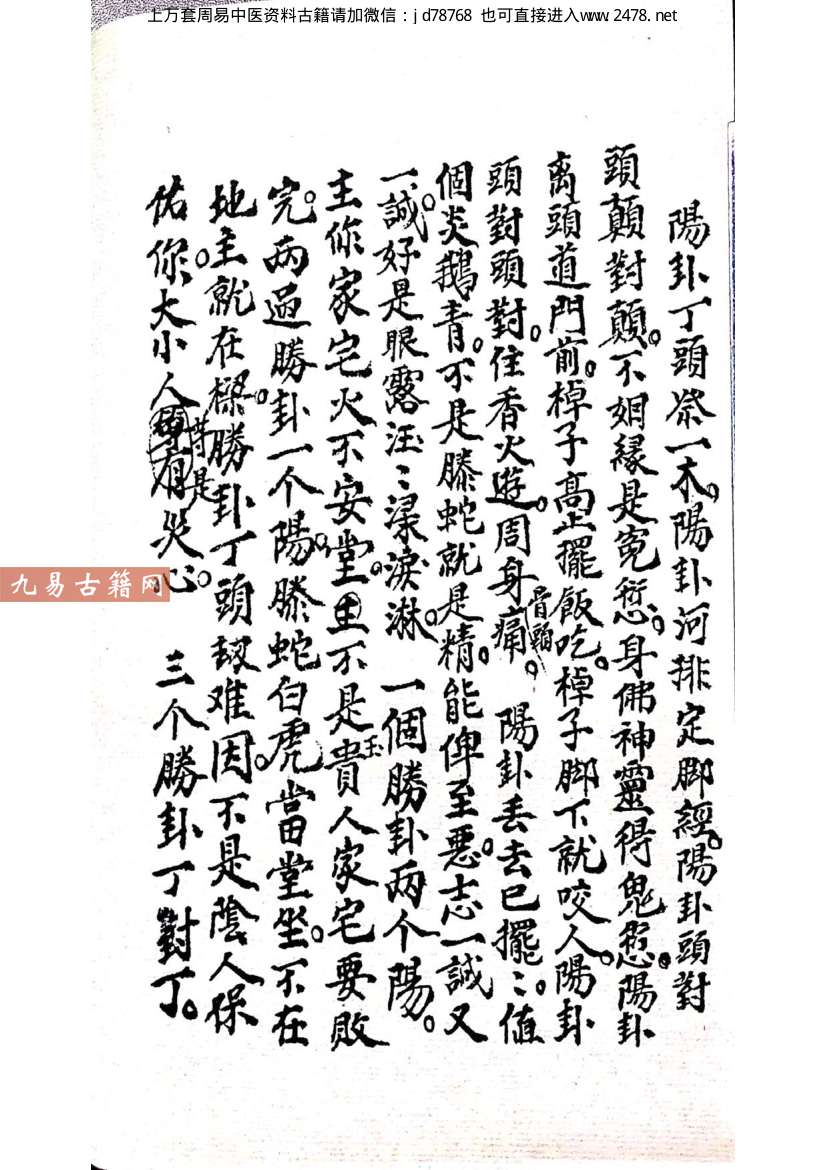 上万套周易中医资料古籍请加微信：jd78768 也可直接进入www.2478.net
陽卦丁頭祭一木。陽卦河排定脚經。陽卦頭對
頭顛對顛。不姻緣是寃愆。身佛神靈得鬼愆。陽卦
离頭道門前。棹子高上擺飯吃。棹子脚下就咬人。陽卦
頭對頭對。住香火遊。周身骨頭痛。陽卦丢去已擺〻。值
個炎鵝青。不是滕蛇就是精。能俾至惡。志一誠又
一誠。好是眼露汪〻淚淋。一個勝卦兩个陽。
主你家宅火不安堂。玉不是貴人家宅要敗
完。两過勝卦一个陽。滕蛇白虎當堂坐。不在
地主就在樑。勝卦丁頭難因。不是陰人保
佑你。大小人莳是有災心。三个勝卦丁對丁。
九易古籍网